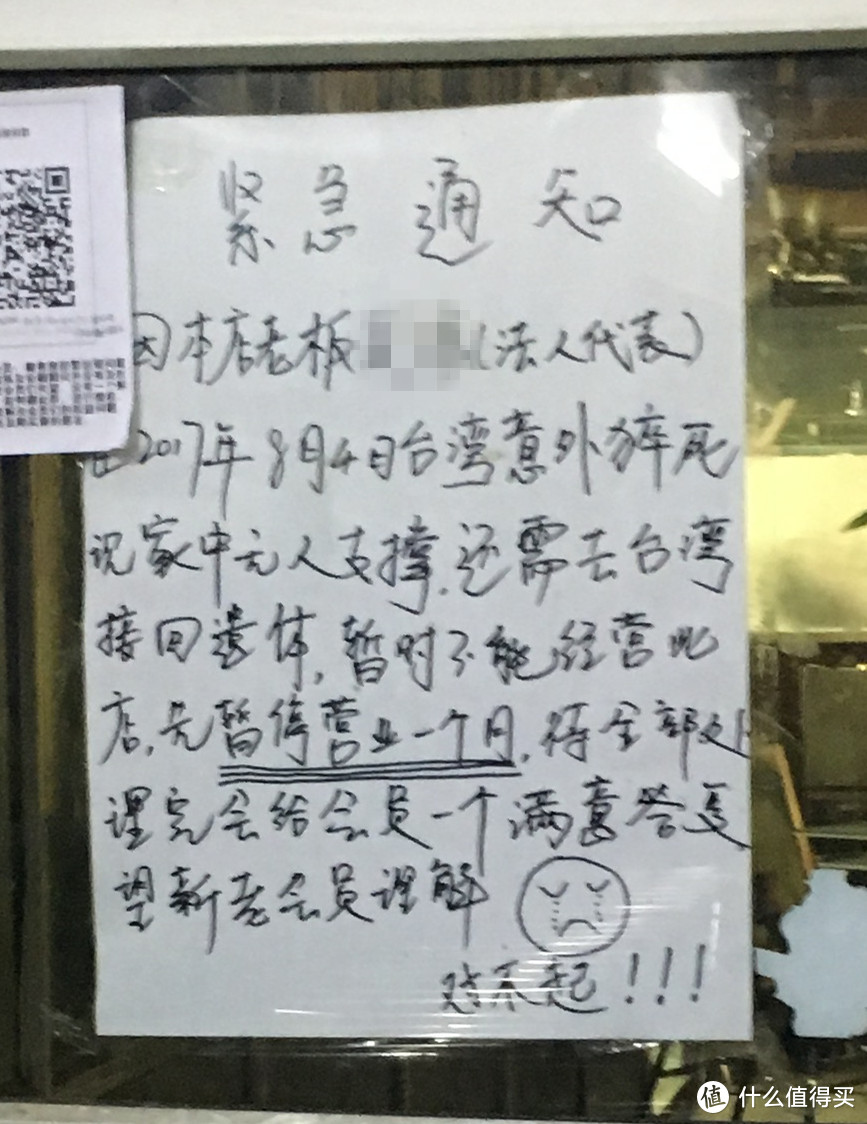 紧急通知
因本店老板 (法人代表)
在2017年8月4日台湾意外猝死
况家中无人支撑,还需去台湾
接回遗体,暂时不能经营此
店,先暂停营业一个月,待全部处
理完会给会员一个满意答复
望新老会员理解
对不起!!!
值 什么值得买